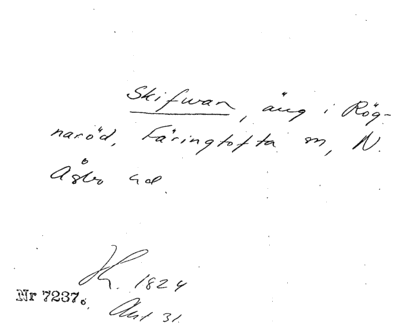 Skifwan, äng i Rög-
naröd, Färingtofta sn, N.
Åsbo hd.
H. 1824
Nr 7237. Akt 31.